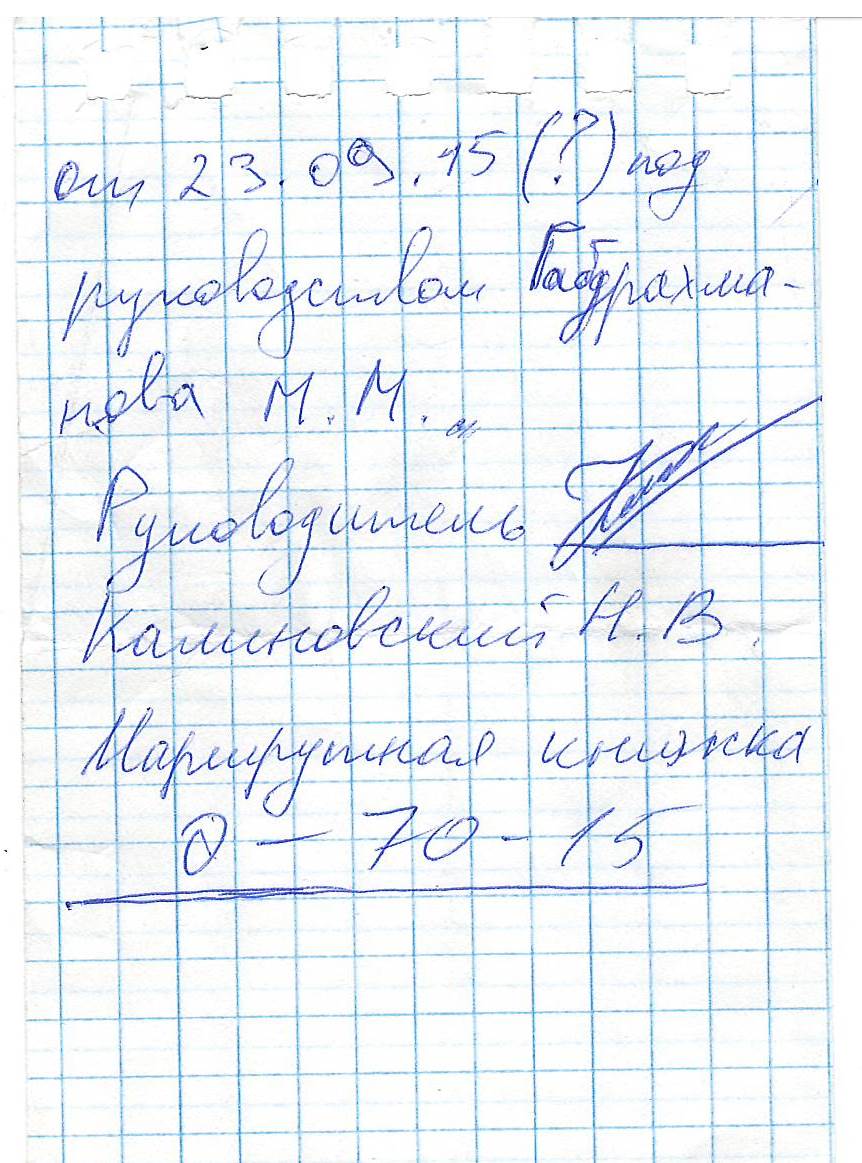 от 23.09.15 (?) под
руководством Габдрахма-
нова М. М.
Руководитель
Калиновский Н. В.
Маршрутная книжка
0 - 70 - 15